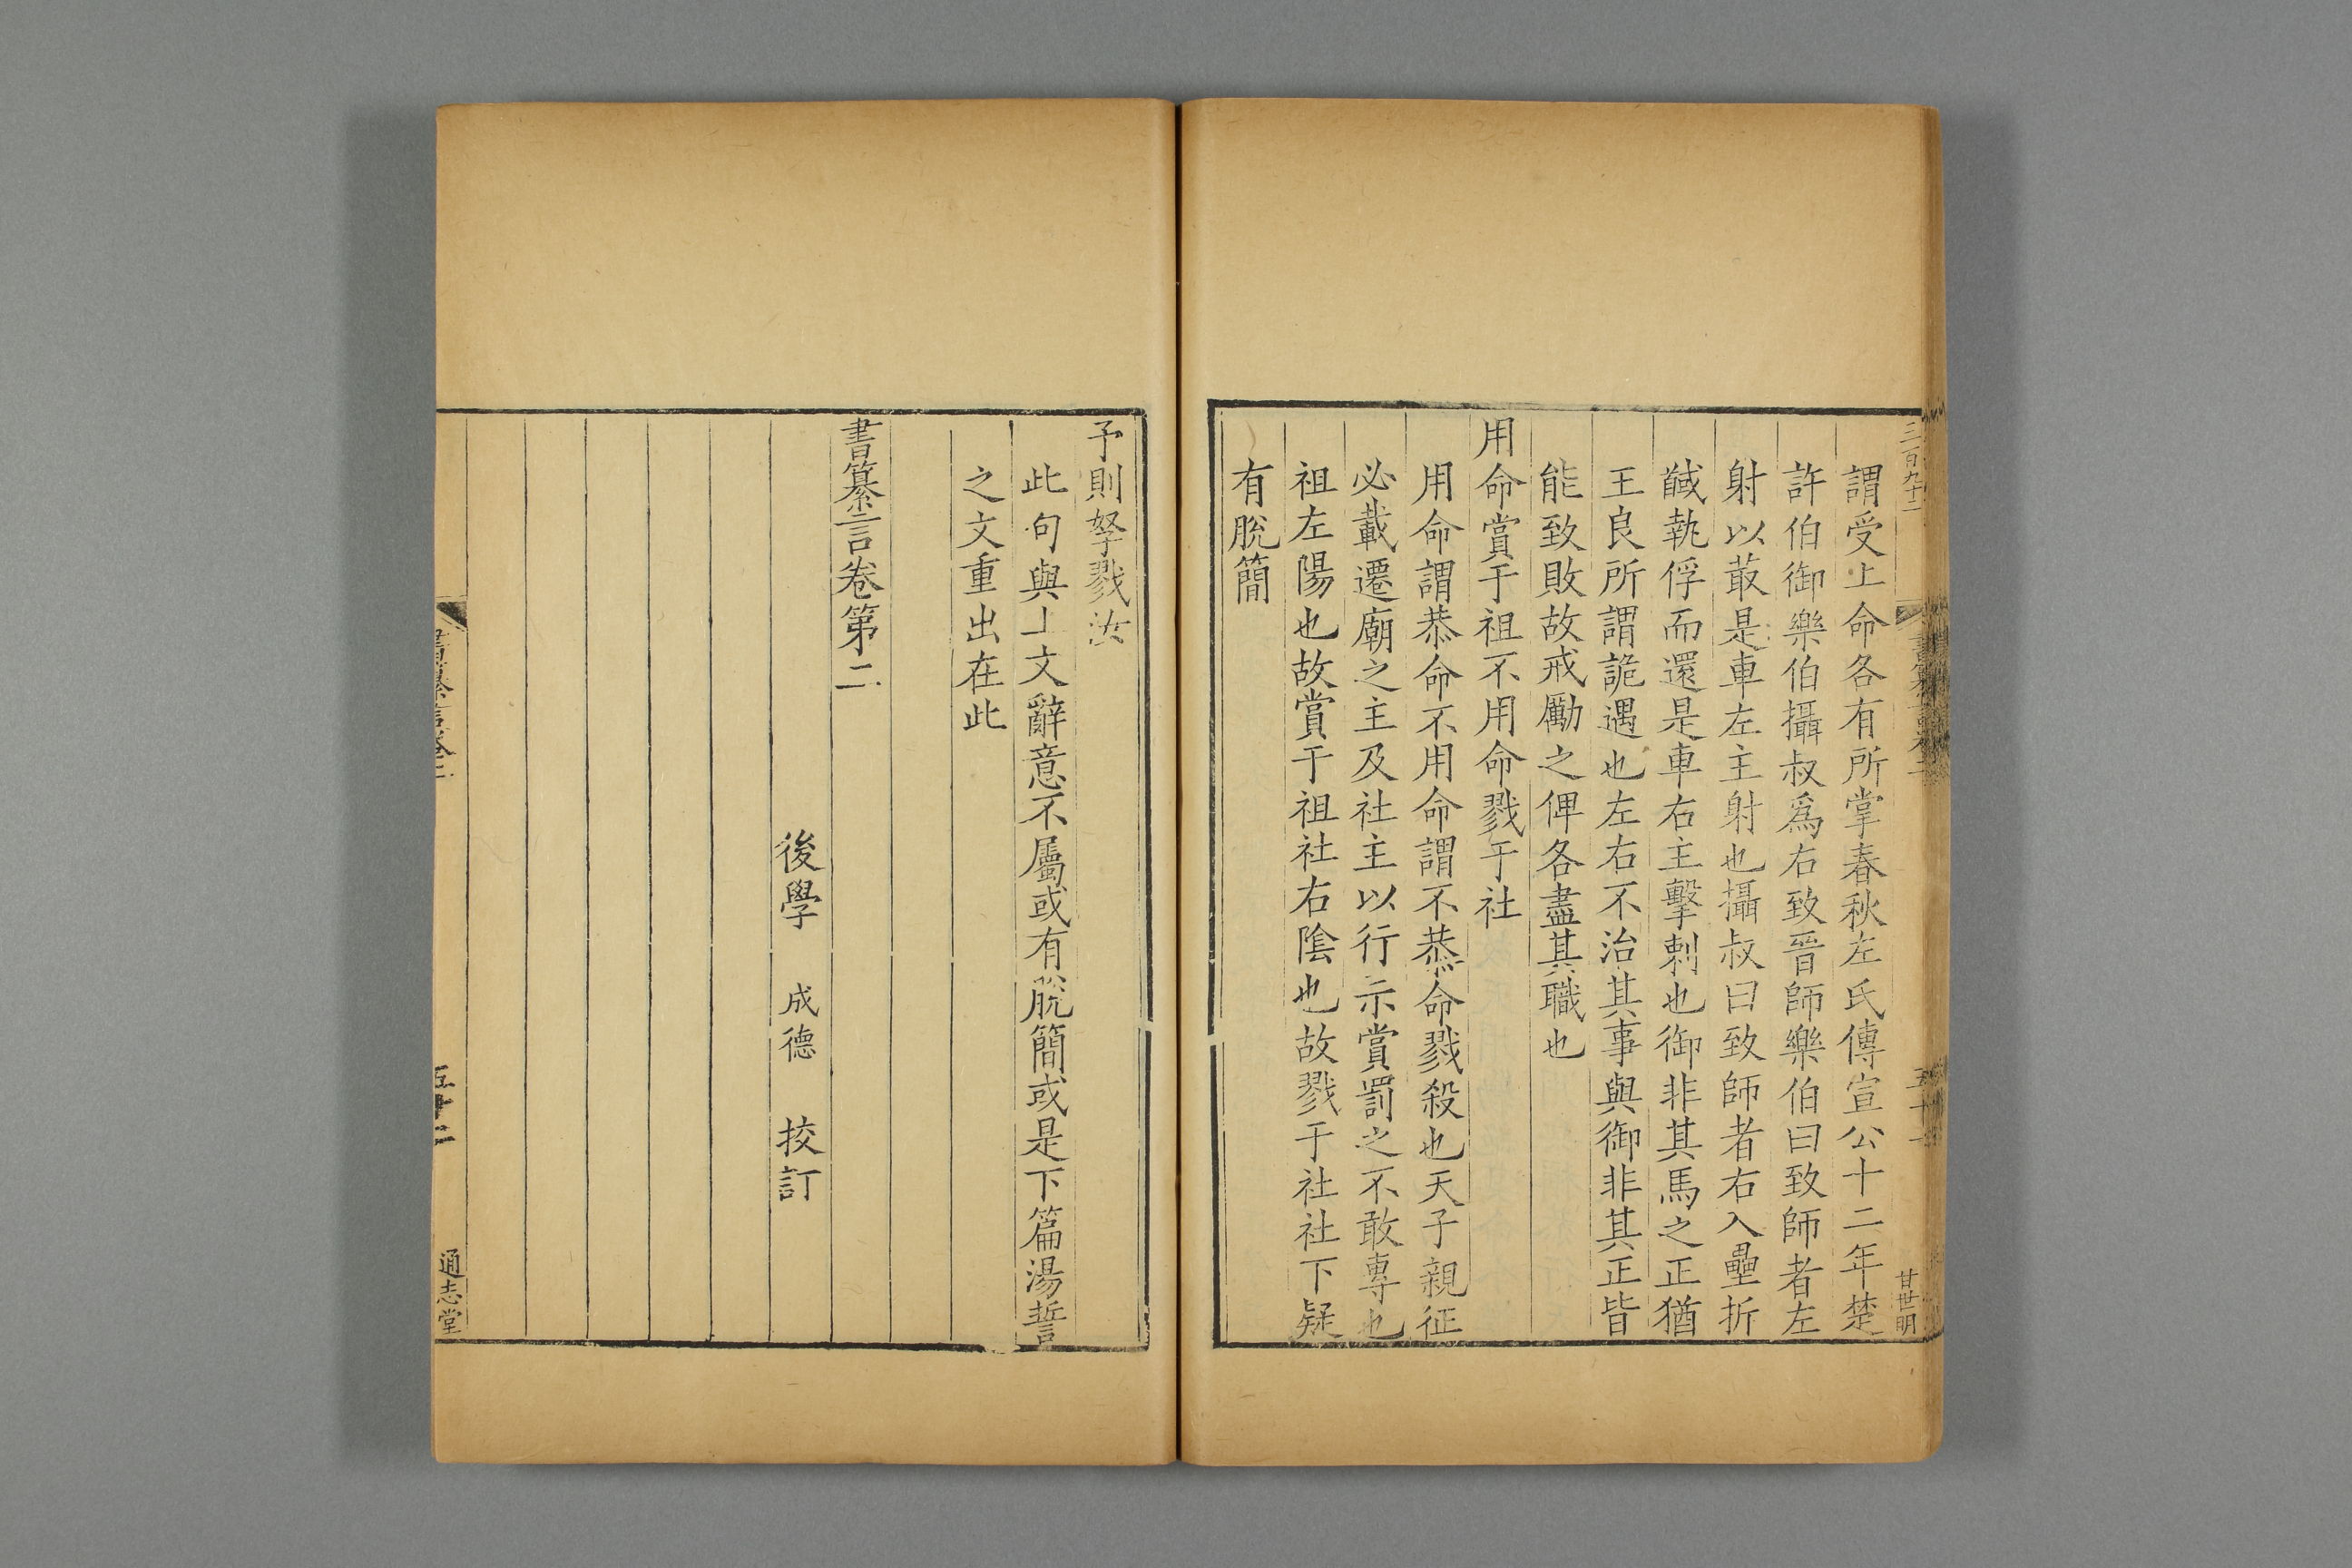 三百九十二
甘世明
謂受上命各有所掌春秋左氏傳宣公十二年楚
許伯御樂伯攝叔爲右致晉師樂伯曰致師者左
射以菆是車左主射也攝叔曰致師者右入壘折
馘執俘而還是車右主擊刺也御非其馬之正猶
王良所謂詭遇也左右不治其事與御非其正皆
能致敗故戒勵之俾各盡其職也
用命賞于祖不用命戮于社
用命謂恭命不用命謂不恭命戮殺也天子親征
必載遷廟之主及社主以行示賞罰之不敢專也
祖左陽也故賞于祖社右陰也故戮于社社下疑
有脫簡
予則孥戮汝
此句與上文辭意不屬或有脫簡或是下篇湯誓
之文重出在此
書纂言卷第二
後學 成德 挍訂
書纂言卷二
五十二
通志堂